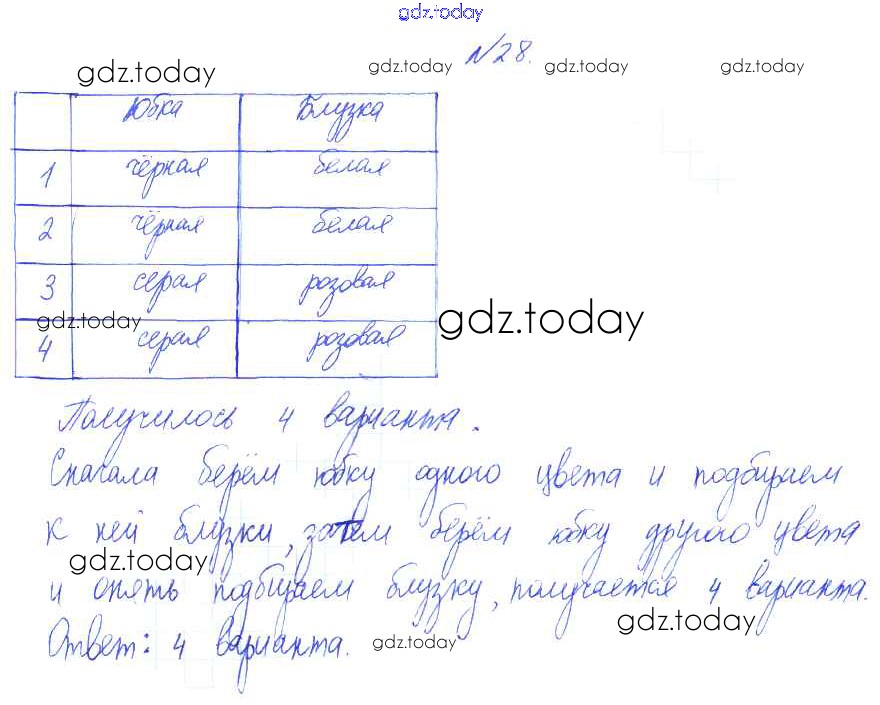 gdz.today
№28.
gdz.today gdz.today gdz.today gdz.today
Юбка Блузка
1 чёрная белая
2 чёрная белая
3 серая розовая
gdz.today gdz.today
4 серая розовая
Получилось 4 варианта.
Сначала берём юбку одного цвета и подбираем
к ней блузки, затем берём юбку другого цвета
gdz.today
и опять подбираем блузку, получается 4 варианта.
gdz.today
Ответ: 4 варианта.
gdz.today